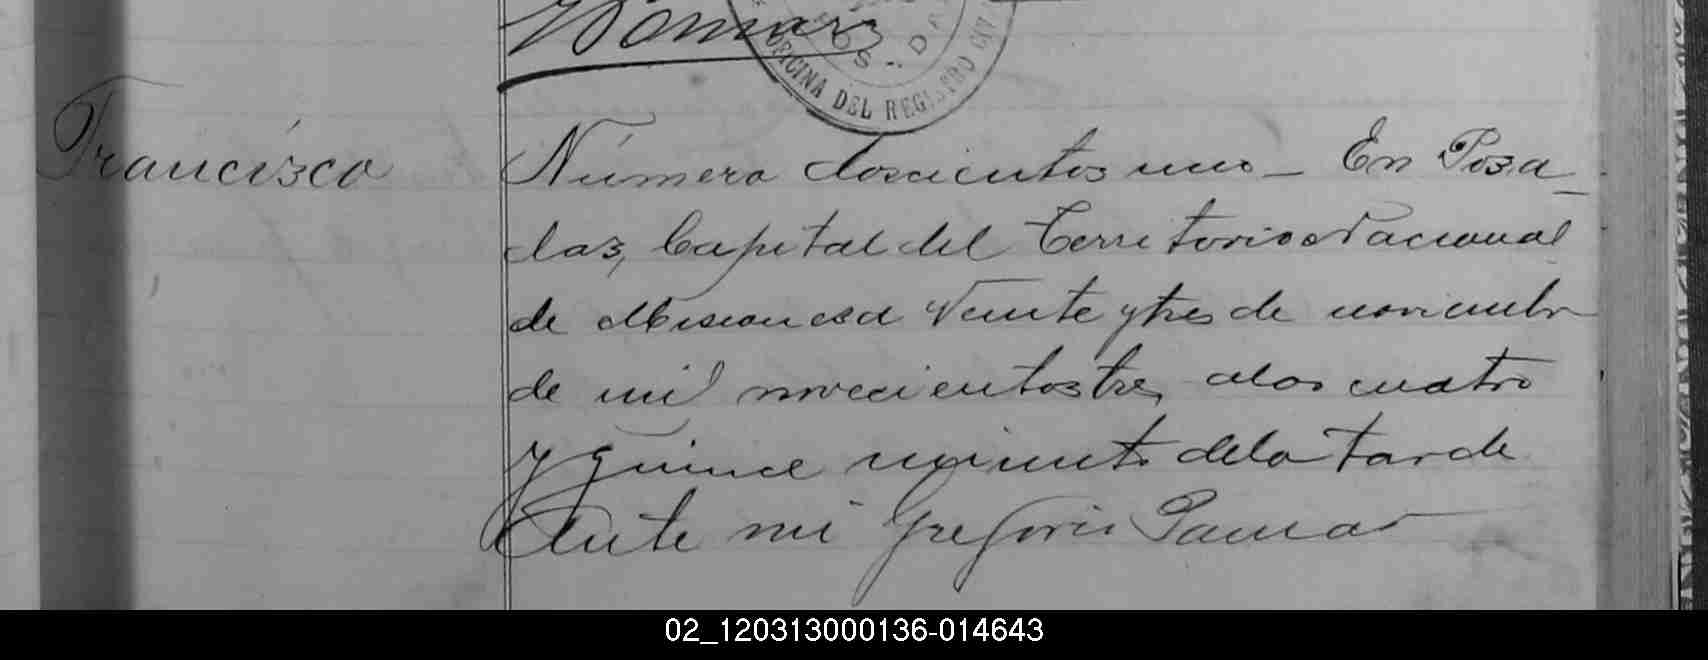 OFICINA DEL REGISTRO CIV
Francisco
Número doscientos uno _ En Posa_
das, Capital del Territorio Nacional
de Misiones a Veinte y tres de noviembre
de mil novecientos tres, a las cuatro
y quince minutos de la tarde
Ante mi Gregorio
02_120313000136-014643